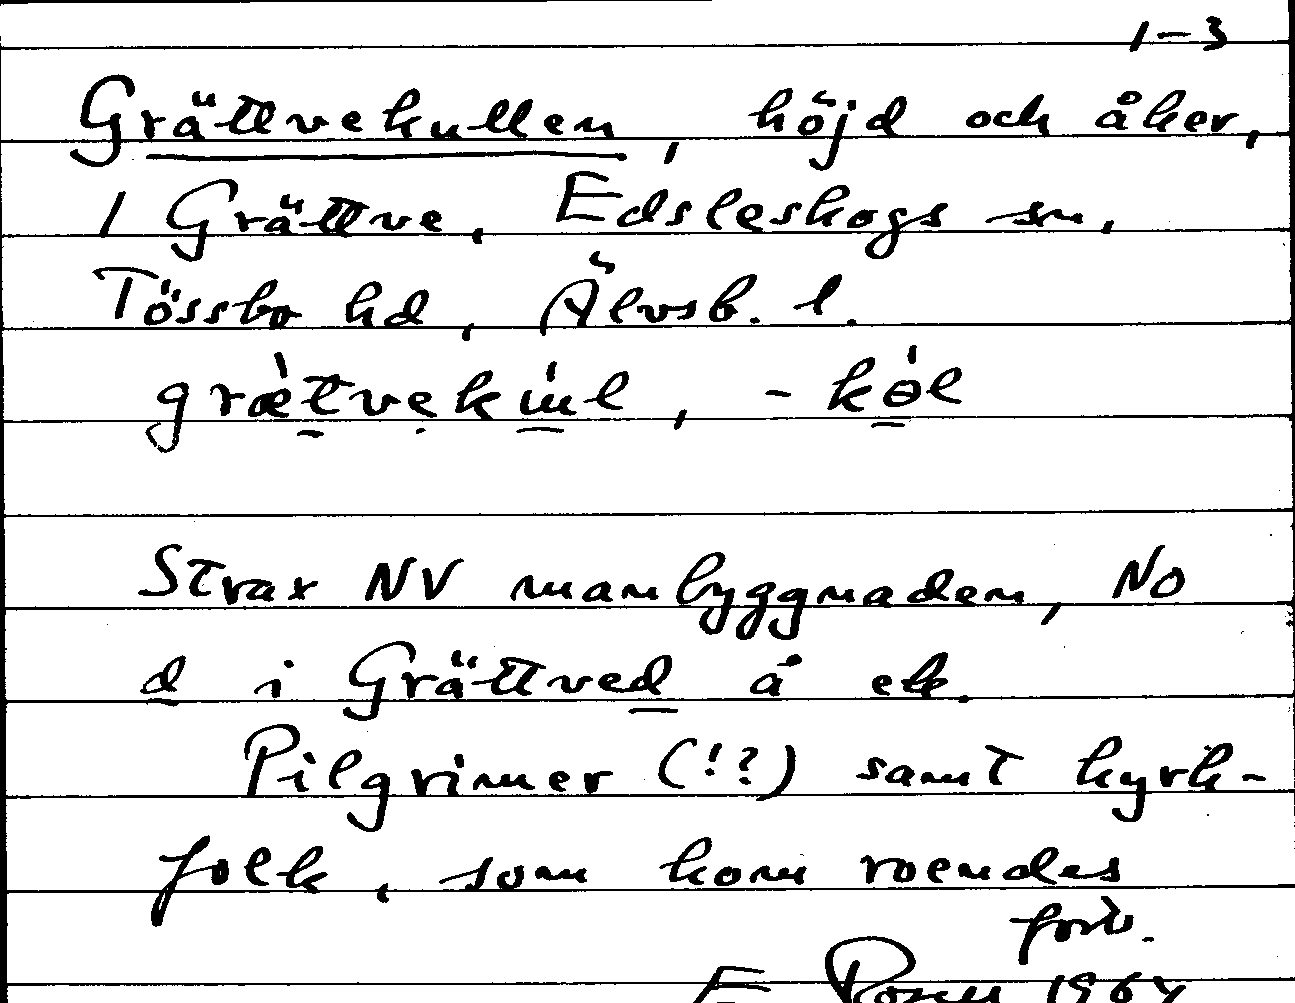 1-3
Grättvekullen, höjd och åker,
1 Grättve, Edsleskogs sn,
Tössbo hd, Älvsb. l.
græ̀tvekúl, -kól
Strax NV manbyggnaden, No
d i Grättved å ek.
Pilgrimer (!?) samt kyrk-
folk, som kom roendes
forts.
E 1964